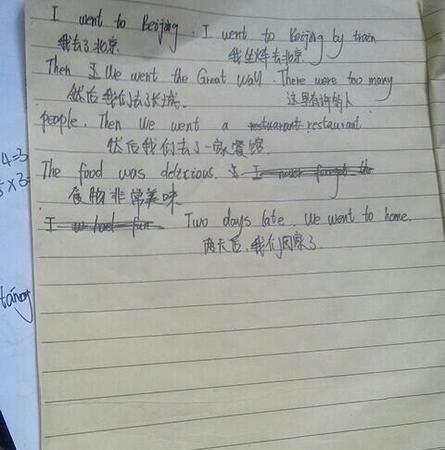 I went to Beijing. I went to Beijing by train
我去了北京 我坐火车去北京
Then I We went the Great Wall. There were too many
然后我们去了长城. 这里有许多人
people. Then We went a restaurant restaurant
然后我们去了一家宾馆
The food was delicious. I must forget the
食物非常美味
I had fun Two days late. We went to home.
两天后,我们回家了
4=3
5×3